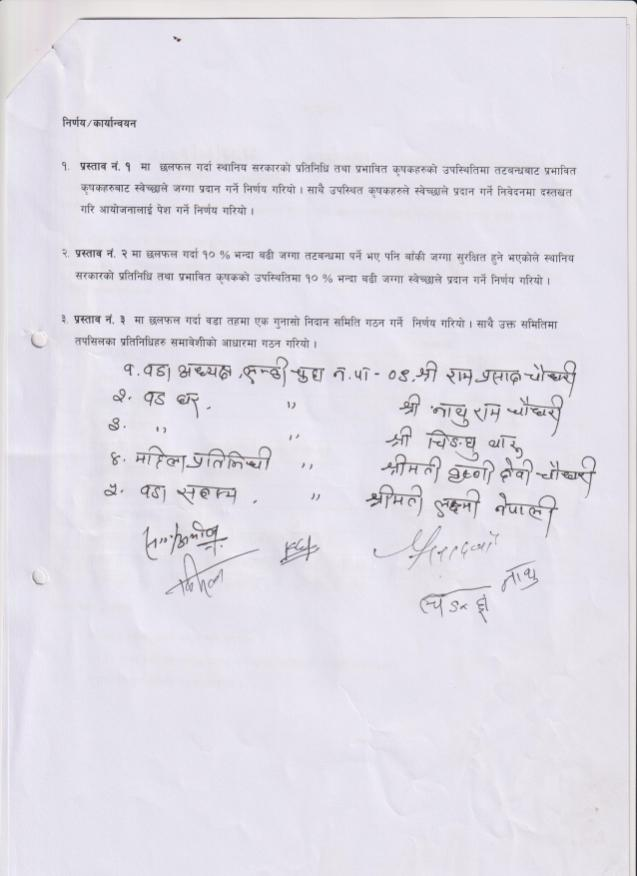 निर्णय/कार्यान्वयन
१. प्रस्ताव नं. १ मा छलफल गर्दा स्थानिय सरकारको प्रतिनिधि तथा प्रभावित कृषकहरुको उपस्थितिमा तटबन्धबाट प्रभावित
कृषकहरुबाट स्वेच्छाले जग्गा प्रदान गर्ने निर्णय गरियो । साथै उपस्थित कृषकहरुले स्वेच्छाले प्रदान गर्ने निवेदनमा दस्तखत
गरि आयोजनालाई पेश गर्ने निर्णय गरियो ।
२. प्रस्ताव नं. २ मा छलफल गर्दा १० % भन्दा बढी जग्गा तटबन्धमा पर्ने भए पनि बाँकी जग्गा सुरक्षित हुने भएकोले स्थानिय
सरकारको प्रतिनिधि तथा प्रभावित कृषकको उपस्थितिमा १० % भन्दा बढी जग्गा स्वेच्छाले प्रदान गर्ने निर्णय गरियो ।
३. प्रस्ताव नं. ३ मा छलफल गर्दा वडा तहमा एक गुनासो निदान समिति गठन गर्ने निर्णय गरियो । साथै उक्त समितिमा
तपसिलका प्रतिनिधिहरु समावेशीको आधारमा गठन गरियो ।
१. वडा अध्यक्ष, न.पा - ०९, श्री राम प्रसाद चौधरी
२. वड घर, " श्री नाथु राम चौधरी
३. " " श्री थारु
४. महिला प्रतिनिधी " श्रीमती देवी चौधरी
५. वडा सदस्य, " श्रीमती लक्ष्मी नेपाली
नाथु